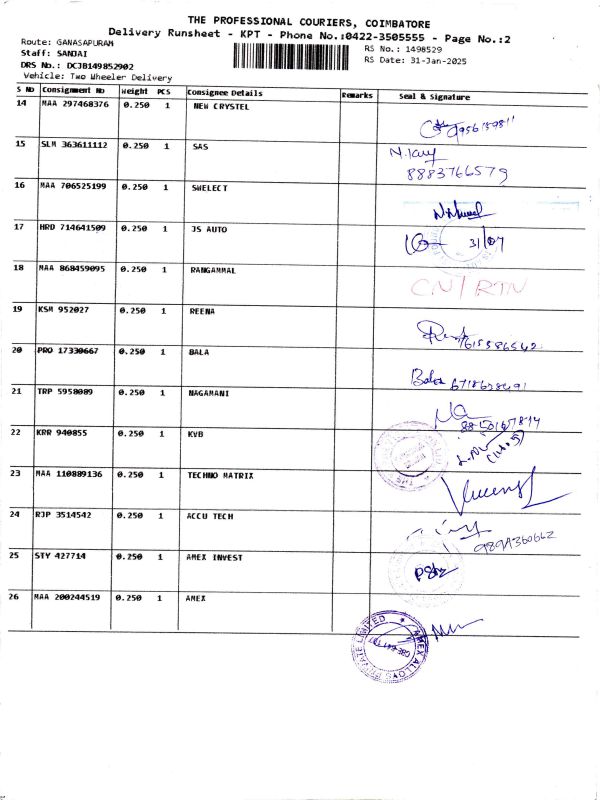 THE PROFESSIONAL COURIERS, COIMBATORE
Delivery Runsheet - KPT - Phone No.:0422-3505555 - Page No.:2
Route: GANASAPURAM
RS No.: 1498529
Staff: SANJAI
RS Date: 31-Jan-2025
DRS No.: DCJB149852902
Vehicle: Two Wheeler Delivery
S No Consignment No Weight PCS Consignee Details Remarks Seal & Signature
14 MAA 297468376 0.250 1 NEW CRYSTEL
15 SLM 363611112 0.250 1 SAS
8883766579
16 MAA 706525199 0.250 1 SWELECT
17 HRD 714641509 0.250 1 JS AUTO
18 MAA 868459095 0.250 1 RANGAMMAL
CN/RTN
19 KSM 952027 0.250 1 REENA
20 PRO 17330667 0.250 1 BALA
Bala
21 TRP 5958089 0.250 1 NAGAMANI
22 KRR 940855 0.250 1 KVB
23 MAA 110889136 0.250 1 TECHNO MATRIX
24 RJP 3514542 0.250 1 ACCU TECH
9894360662
25 STY 427714 0.250 1 AMEX INVEST
26 MAA 200244519 0.250 1 AMEX
AMEX ALLOYS PRIVATE LIMITED